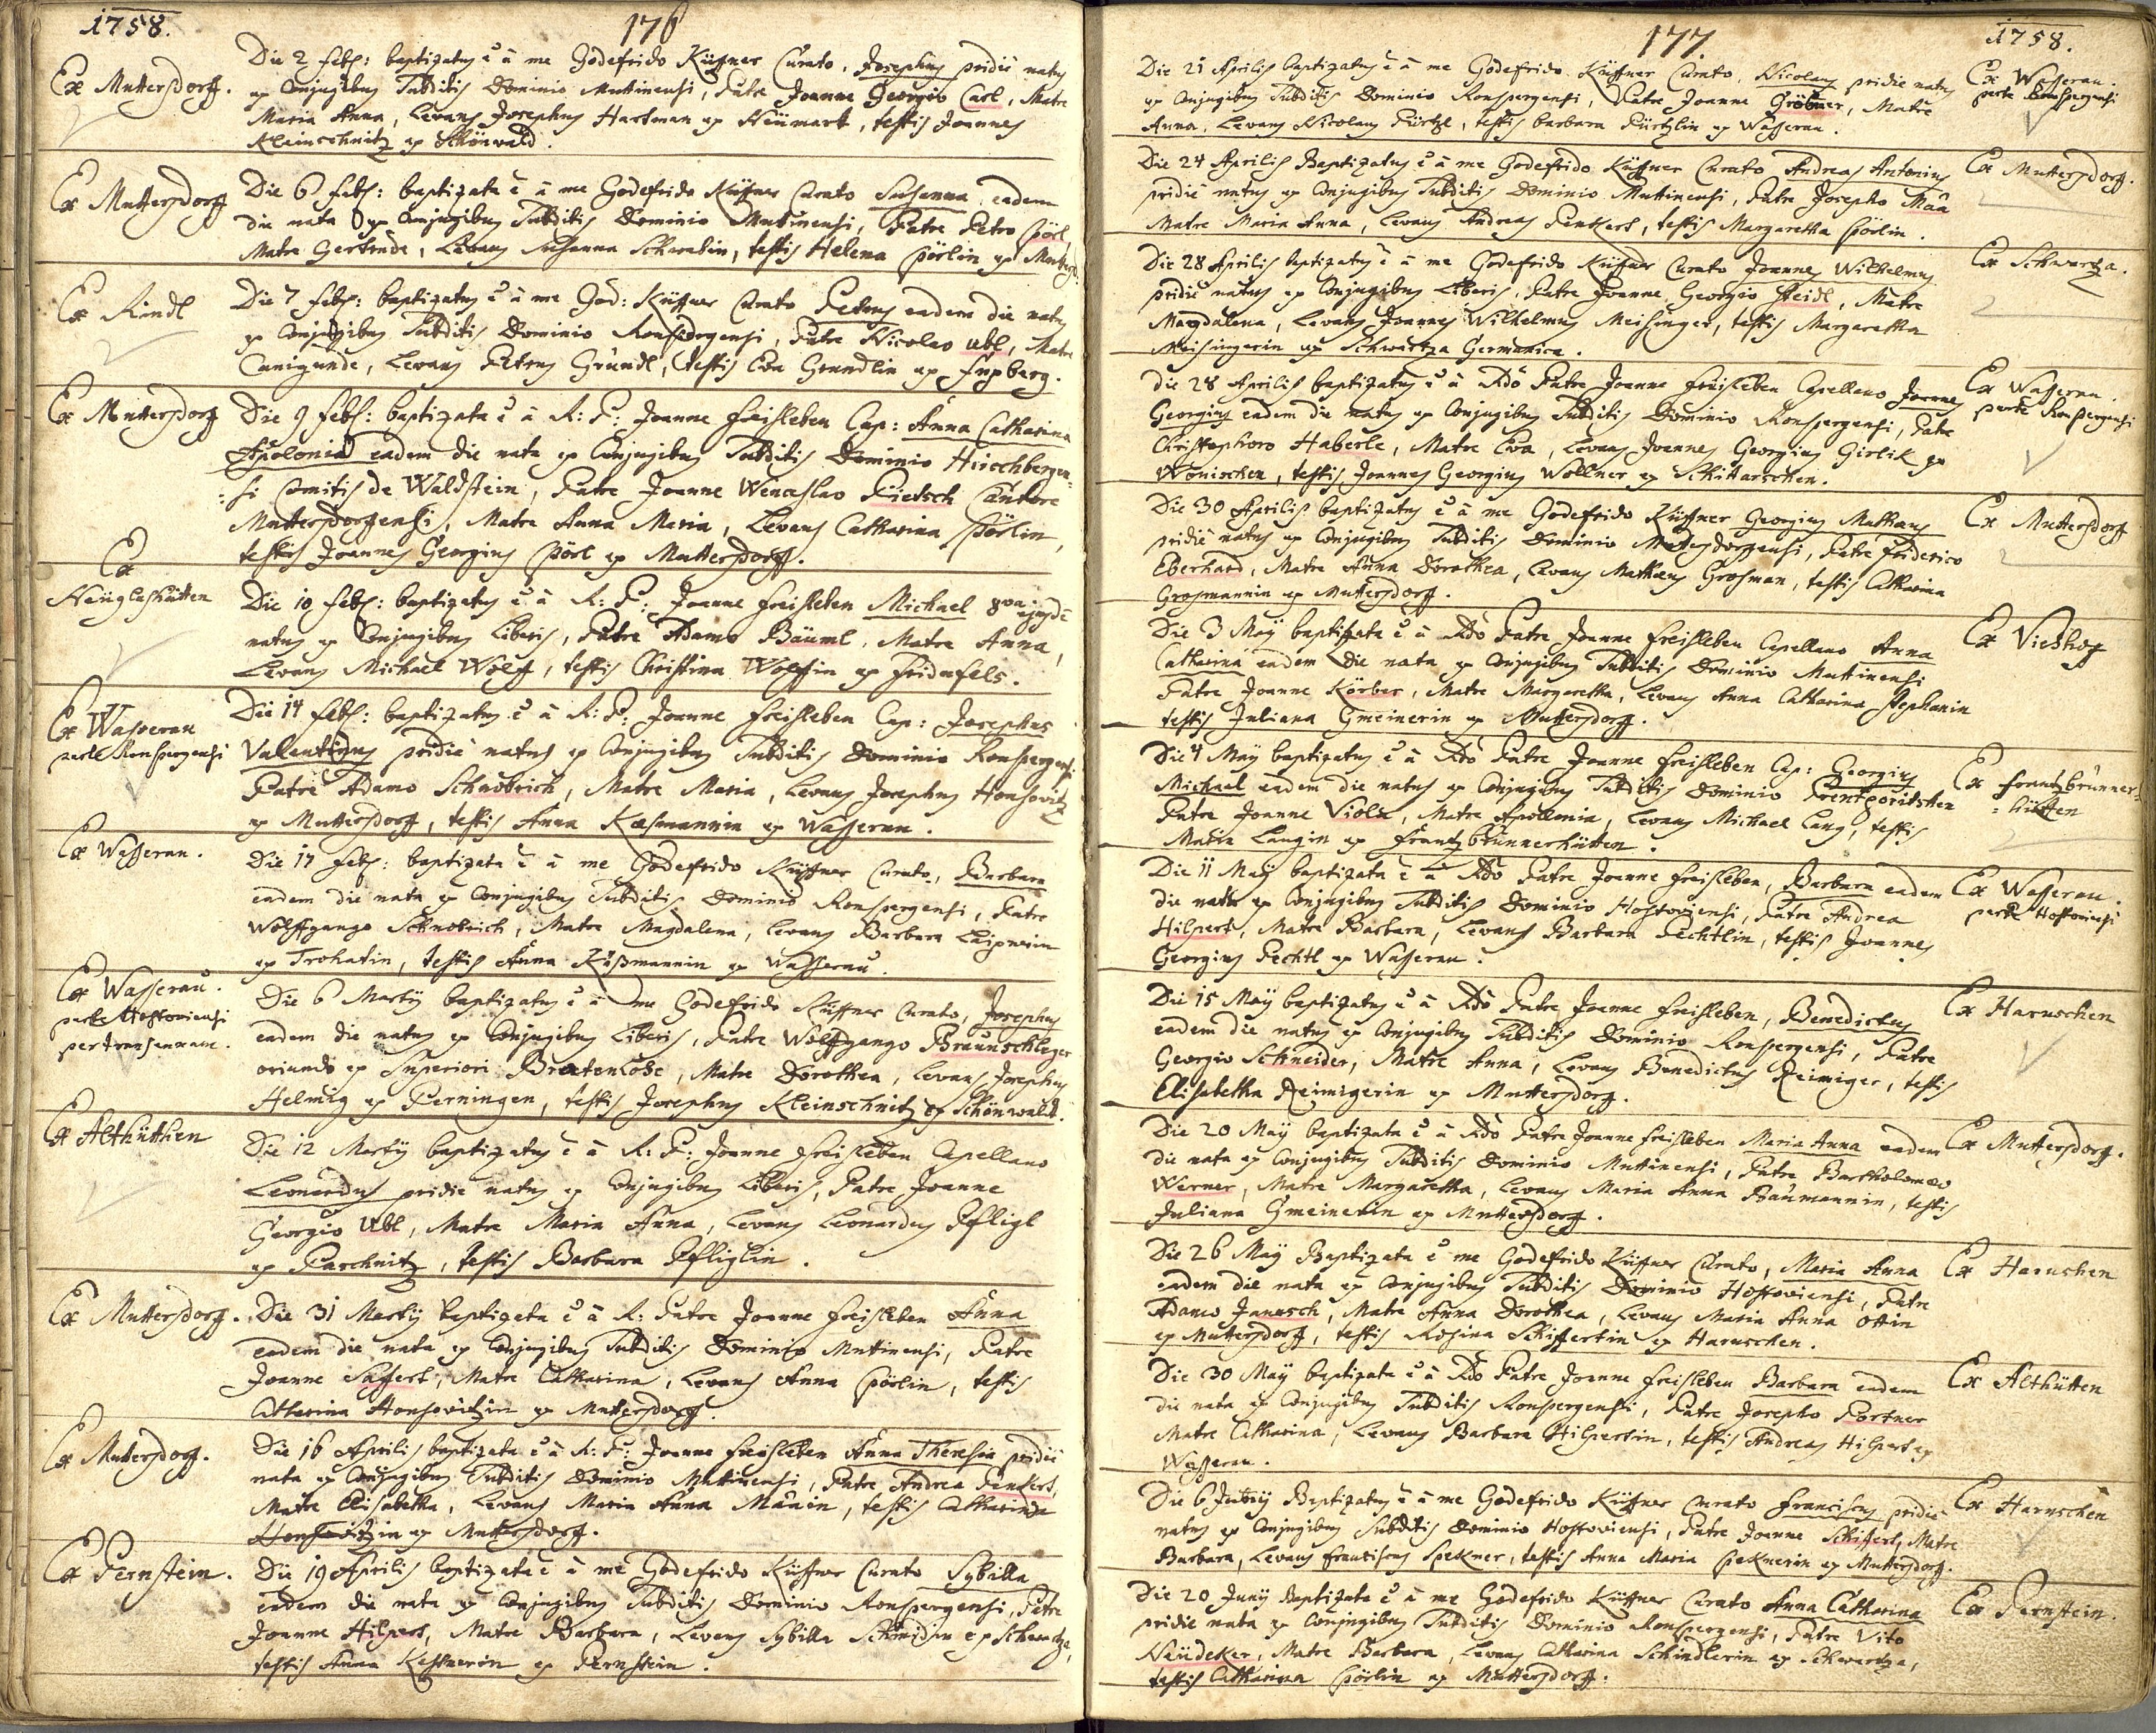 1758.
176
Ex Muttersdorff.
Die 2 Feb: baptizatus ē à me Godefrido Küffner Curato, Josephus pridiè natus
ex Conjugibus Subditis Dominio Muttinensi, Patre Joanne Georgio Carl, Matre
Maria Anna, Levans Josephus Hartman ex Neümark, testis Joannes
Kleinschnitz ex Schönwald.
Ex Muttersdorff
Die 6 Feb: baptizata ē à me Godefrido Küffner Curato Susanna eadem
die nata ex Conjugibus Subditis Dominio Muttinensi, Patre Petro Pörl,
Matre Gertrude, Levans Susanna Schwabin, testis Helena Pörlin ex Muttersd:
Ex Rindl
Die 7 Feb: baptizatus ē à me God: Küffner Curato Petrus eadem die natus
ex Conjugibus Subditis Dominio Ronspergensi, Patre Nicolao Ubl, Matre
Cunigunde, Levans Petrus Grundl, testis Eva Grundlin ex Fuxberg.
Ex Muttersdorff
Die 9 Feb: baptizata ē à R: P: Joanne Freisleben Cap: Anna Catharina
Apolonia eadem die nata ex Conjugibus Subditis Dominio Hirschbergen=
:si Comitis de Waldstein, Patre Joanne Wenceslao Pietsch Cantore
Muttersdorffensi, Matre Anna Maria, Levans Catharina Pörlin,
testis Joannes Georgius Pörl ex Muttersdorff.
Ex
Neügleshütten
Die 10 Feb: baptizatus ē à R: P: Joanne Freisleben Michael 8va ejusdē
natus ex Conjugibus Liberis, Patre Adamo Bäuml, Matre Anna,
Levans Michael Wolff, testis Christina Wolffin ex Fridrfels.
Ex Wasserau
parte Ronspergensi
Die 14 Feb: baptizatus ē à R: P: Joanne Freisleben Cap: Josephus
Valentinus pridiè natus ex Conjugibus Subditis Dominio Ronspergensi
Patre Adamo Schnobrich, Matre Maria, Levans Josephus Honsovitz
ex Muttersdorff, testis Anna Kasmannin ex Wasserau.
Ex Wasserau.
Die 17 Feb: baptizata ē à me Godefrido Küffner Curato, Barbara
eadem die nata ex Conjugibus Subditis Dominio Ronspergensi, Patre
Wolffgango Schnobrich, Matre Magdalena, Levans Barbara
ex Trohatin, testis Anna Käßmannin ex Wasserau.
Ex Wasserau.
parte Hostoviensi
per transennam.
Die 6 Martÿ baptizatus ē à me Godefrido Küffner Curato, Josephus
eadem die natus ex Conjugibus Liberis, Patre Wolffgango Braunschleger
oriundo ex Superiori Bratenlohe, Matre Dorothea, Levans Josephus
Helmig ex Perningen, testis Josephus Kleinschnitz ex Schönwald.
Ex Althütten
Die 12 Martÿ baptizatus ē à R: P: Joanne Freisleben Capellano
Leonardus pridie natus ex Conjugibus Liberis, Patre Joanne
Georgio Ubl, Matre Maria Anna, Levans Leonardus Pfligl
ex Parchnitz, testis Barbara Pfliglin.
Ex Muttersdorf.
Die 31 Martÿ baptizata ē à R: Patre Joanne Freisleben Anna
eadem die nata ex Conjugibus Subditis Dominio Muttinensi, Patre
Joanne Saffert, Matre Catharina, Levans Anna Pörlin, testis
Catharina Honsovitzin ex Muttersdorff.
Ex Muttersdorf.
Die 16 Aprilis baptizata ē à R: P: Joanne Freisleben Anna Theresia pridiè
nata ex Conjugibus Subditis Dominio Muttinensi, Patre Andrea Penkert,
Matre Elisabetha, Levans Maria Anna Mänin, testis Catharina
Honsovitzin ex Muttersdorff.
Ex Pernstein.
Die 19 Aprilis baptizata ē à me Godefrido Küffner Curato Sybilla
eadem die nata ex Conjugibus Subditis Dominio Ronspergensi, Patre
Joanne Hilpert, Matre Barbara, Levans Sybilla Schmidin ex Schwartza,
testis Anna Kestnerin ex Pernstein.
177
1758.
Die 21 Aprilis baptizatus ē à me Godefrido Küffner Curato, Nicolaus pridie natus
ex Conjugibus Subditis Dominio Ronspergensi, Patre Joanne Gröbner, Matre
Anna, Levans Nicolaus Pürtzl, testis Barbara Pürtzlin ex Wasserau.
Ex Wasserau.
parte Ronspergensi
Die 24 Aprilis Baptizatus ē à me Godefrido Küffner Curato Andreas Antonius
pridiè natus ex Conjugibus Subditis Dominio Muttinensi, Patre Josepho Män
Matre Maria Anna, Levans Andreas Penkert, testis Margaretha Pörlin.
Ex Muttersdorf.
Die 28 Aprilis baptizatus ē à me Godefrido Küffner Curato Joannes Wilhelmus
pridiè natus ex Conjugibus Liberis, Patre Joanne Georgio Steidl, Matre
Magdalena, Levans Joannes Wilhelmus Meisinger, testis Margaretha
Meisingerin ex Schwartza Germanica.
Ex Schwartza.
Die 28 Aprilis baptizatus ē à Rdo Patre Joanne Freisleben Capellano Joannes
Georgius eadem die natus ex Conjugibus Subditis Dominio Ronspergensi, Patre
Christophoro Haberle, Matre Eva, Levans Joannes Georgius Girlik ex
Wonischen, testis Joannes Georgius Wollner ex Schittarschen.
Ex Wasserau.
parte Ronspergensi
Die 30 Aprilis baptizatus ē à me Godefrido Küffner Georgius Mathæus
pridiè natus ex Conjugibus Subditis Dominio Muttersdorffensi, Patre Friderico
Eberhard, Matre Anna Dorothea, Levans Mathæus Grosman, testis Catharina
Grosmannin ex Muttersdorf.
Ex Muttersdorf
Die 3 Maÿ baptizata ē à Rdo Patre Joanne Freisleben Capellano Anna
Catharina eadem die nata ex Conjugibus Subditis Dominio Muttinensi
Patre Joanne Körber, Matre Margaretha, Levans Anna Catharina Stephanin
testis Juliana Gmeinerin ex Muttersdorff.
Ex Viebhof
Die 4 Maÿ baptizatus ē à Rdo Patre Joanne Freisleben Cap: Georgius
Michael eadem die natus ex Conjugibus Subditis Dominio Trentporitschen
Patre Joanne Viohl, Matre Apollonia, Levans Michael Lang, testis
Maria Langin ex Frantzbrunnerhütten.
Ex Frantzbrunner=
=hütten
Die 11 Maÿ baptizata ē à Rdo Patre Joanne Freisleben, Barbara eadem
die nata ex Conjugibus Subditis Dominio Hostoviensi, Patre Andrea
Hilpert, Matre Barbara, Levans Barbara Pechtlin, testis Joannes
Georgius Pechtl ex Wasserau.
Ex Wasserau.
parte Hostoviensi
Die 15 Maÿ baptizatus ē à Rdo Patre Joanne Freisleben, Benedictus
eadem die natus ex Conjugibus Subditis Dominio Ronspergensi, Patre
Georgio Schneider, Matre Anna, Levans Benedictus Reimiger, testis
Elisabetha Reimigerin ex Muttersdorg.
Ex Haruschen
Die 20 Maÿ baptizata ē à Rdo Patre Joanne Freisleben Maria Anna eadem
die nata ex Conjugibus Subditis Dominio Muttinensi, Patre Bartholomæo
Werner, Matre Margaretha, Levans Maria Anna Baumannin, testis
Juliana Gmeinerin ex Muttersdorf.
Ex Muttersdorf.
Die 26 Maÿ Baptizata ē me Godefrido Küffner Curato, Maria Anna
eadem die nata ex Conjugibus Subditis Dominio Hostoviensi, Patre
Adamo Janusch, Matre Anna Dorothea, Levans Maria Anna Ottin
ex Muttersdorff, testis Rosina Schiffertin ex Haruschen.
Ex Haruschen
Die 30 Maÿ baptizata ē à Rdo Patre Joanne Freisleben Barbara eadem
die nata ex Conjugibus Subditis Ronspergensi, Patre Josepho Portner
Matre Catharina, Levans Barbara Hilpertin, testis Andreas Hilpert ex
Wasserau.
Ex Althütten
Die 6 Junÿ Baptizatus ē à me Godefrido Küffner Curato Franciscus pridiè
natus ex Conjugibus Subditis Dominio Hostoviensi, Patre Joanne Schiffert, Matre
Barbara, Levans Franciscus Spekner, testis Anna Maria Speknerin ex Muttersdorf.
Ex Haruschen
Die 20 Junÿ Baptizata ē à me Godefrido Küffner Curato Anna Catharina
pridie nata ex Conjugibus Subditis Dominio Ronspergensi, Patre Vito
Neüdeker, Matre Barbara, Levans Catharina Schindlerin ex Schwartza,
testis Catharina Pörlin ex Muttersdorff.
Ex Pernstein.